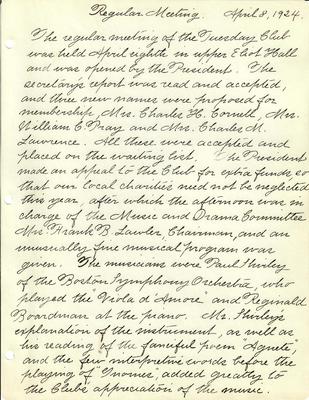 Regular Meeting. April 8, 1924.
The regular meeting of the Tuesday Club
was held April eighth in upper Eliot Hall
and was opened by the President. The
secretary's report was read and accepted,
and three new names were proposed for
membership, Mrs. Charles H. Cornell, Mrs.
William C. Pray and Mrs. Charles M.
Lawrence. All these were accepted and
placed on the waiting list. The President
made an appeal to the Club for extra funds, so
that our local charities need not be neglected
this year, after which the afternoon was in
charge of the Music and Drama Committee
Mrs. Frank B. Lawler, Chairman, and an
unusually fine musical program was
given. The musicians were Paul Shirley
of the Boston Symphony Orchestra, who
played the "Viola d'Amore" and Reginald
Boardman at the piano. Mr. Shirley's
explanation of the instrument, as well as
his reading of the fanciful poem
and the few interpretive words before the
playing of added greatly to
the Club's appreciation of the music.